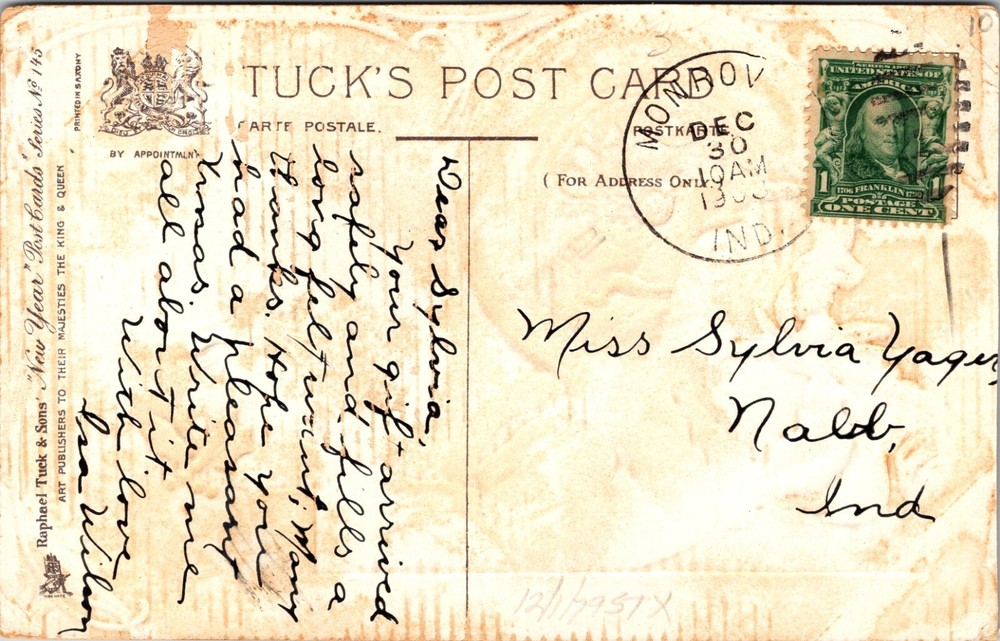 TUCK'S POST CARD
CARTE POSTALE.
POSTKARTE
BY APPOINTMENT
(FOR ADDRESS ONLY.)
PRINTED IN SAXONY
Raphael Tuck & Sons' "New Year" Post Cards Series No 145
ART PUBLISHERS TO THEIR MAJESTIES THE KING & QUEEN
MONROV
DEC
30
10 AM
IND.
UNITED STATES OF
AMERICA
1706 FRANKLIN 1790
1 1
POSTAGE
ONE CENT
10
Dear Sylvia,
Your gift arrived
safely and fills a
long felt want; Many
thanks. Hope you
had a pleasant
Xmas. Write me
all about it
With love
Isa Wilson
Miss Sylvia Yager
Nabb,
Ind